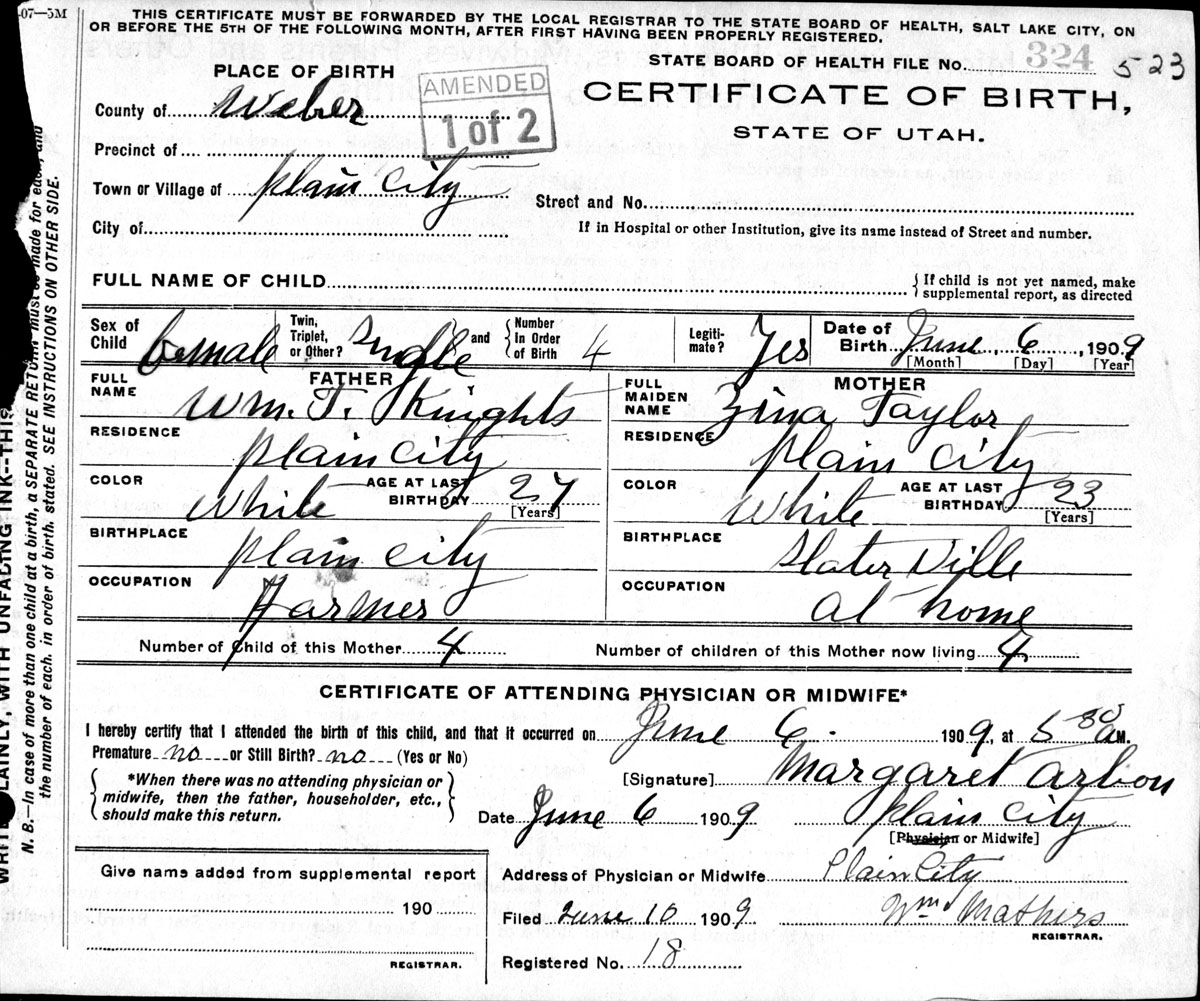 -07-5M
THIS CERTIFICATE MUST BE FORWARDED BY THE LOCAL REGISTRAR TO THE STATE BOARD OF HEALTH, SALT LAKE CITY, ON
OR BEFORE THE 5TH OF THE FOLLOWING MONTH, AFTER FIRST HAVING BEEN PROPERLY REGISTERED.
STATE BOARD OF HEALTH FILE No. 324 523
PLACE OF BIRTH
AMENDED
1 of 2
CERTIFICATE OF BIRTH,
STATE OF UTAH.
County of Weber
Precinct of
Town or Village of Plain City
Street and No.
City of
If in Hospital or other Institution, give its name instead of Street and number.
FULL NAME OF CHILD
{ If child is not yet named, make
supplemental report, as directed
Sex of Child female
Twin, Triplet, or Other? Single and { Number In Order of Birth 4
Legiti-mate? Yes
Date of Birth June 6, 1909
[Month] [Day] [Year]
FATHER
FULL NAME Wm. T. Knights
RESIDENCE Plain City
COLOR White AGE AT LAST BIRTHDAY 27 [Years]
BIRTHPLACE Plain City
OCCUPATION Farmer
MOTHER
FULL MAIDEN NAME Zina Taylor
RESIDENCE Plain City
COLOR White AGE AT LAST BIRTHDAY 23 [Years]
BIRTHPLACE Slater Ville
OCCUPATION at home
Number of Child of this Mother 4 Number of children of this Mother now living 4
CERTIFICATE OF ATTENDING PHYSICIAN OR MIDWIFE*
I hereby certify that I attended the birth of this child, and that it occurred on June 6. 1909, at 5 30 a M.
Premature no or Still Birth? no (Yes or No)
{ *When there was no attending physician or
midwife, then the father, householder, etc.,
should make this return. }
[Signature] Margaret Arbon
Date June 6 1909 Plain City
[Physician or Midwife]
Give name added from supplemental report
190
REGISTRAR.
Address of Physician or Midwife Plain City
Filed June 10 1909 Wm Mathers
REGISTRAR.
Registered No. 18
PLAINLY, WITH UNFADING INK--THIS
N. B.—In case of more than one child at a birth, a SEPARATE RETURN must be made for each, and
the number of each, in order of birth, stated. SEE INSTRUCTIONS ON OTHER SIDE.